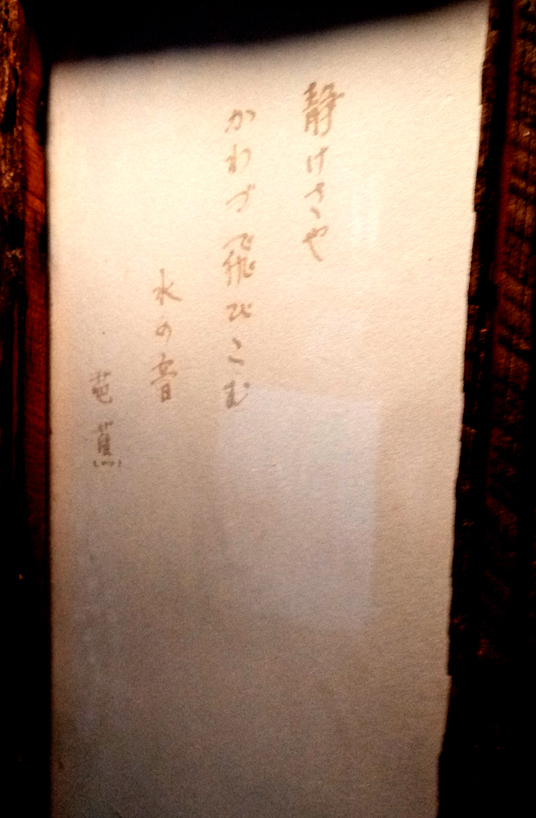 静けさや
かわづ飛びこむ
水の音
芭蕉